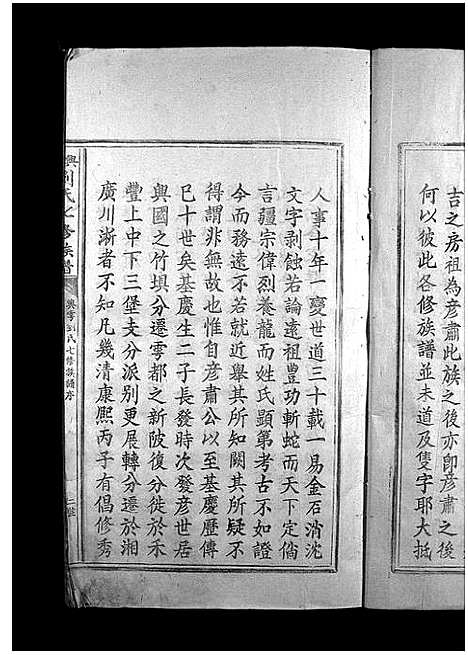 吉之房祖為彦肅此族之後亦卽彦肅之後
何以彼此各修族譜並未道及隻字耶大抵
人事十年一變世道三十載一易金石消沈
文字剥蝕若論遠祖豐功斬蛇而天下定倘
言疆宗偉烈養龍而姓氏顯第考古不如證
今而務遠不若就近舉其所知闕其所疑不
得謂非無故也惟自彦肅公以至基慶歷傳
巳十世矣基慶生二子長發時次發彦世居
興國之竹垻分遷雩都之新陂復分徙於禾
豐上中下三堡支分派別更展轉分遷於湘
廣川淅者不知凡幾清康熈丙子有倡修秀
興 劉氏七修族譜
興雩劉氏七修族譜序